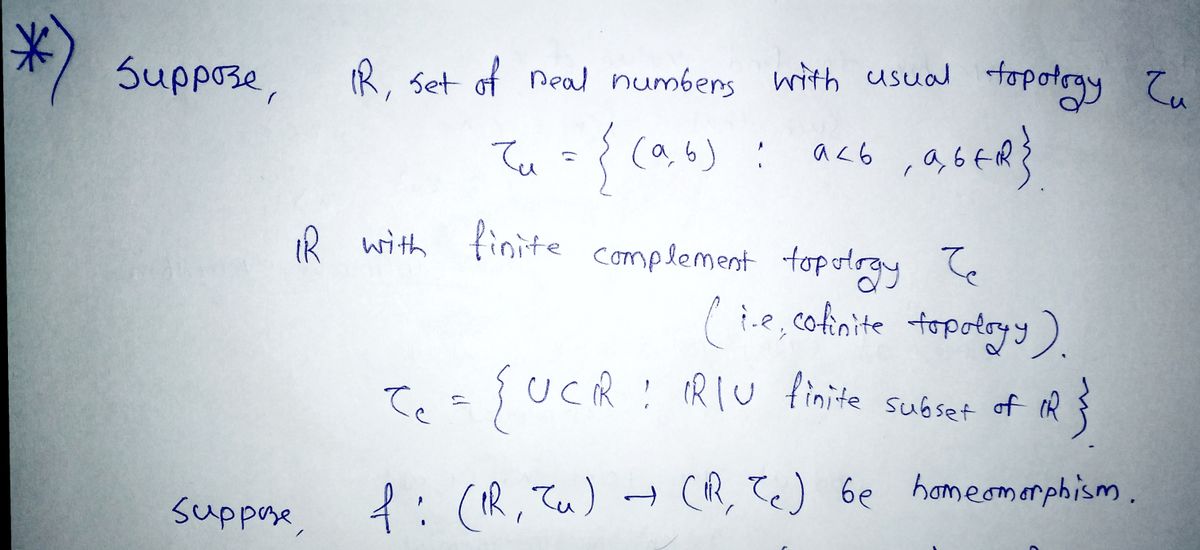 *) Suppose, ℝ, set of real numbers with usual topology τᵤ
τᵤ = { (a, b) : a < b , a, b ∈ ℝ }.
ℝ with finite complement topology τ_c
(i.e, cofinite topology).
τ_c = { U ⊂ ℝ : ℝ \ U finite subset of ℝ }.
Suppose, f : (ℝ, τᵤ) → (ℝ, τ_c) be homeomorphism.